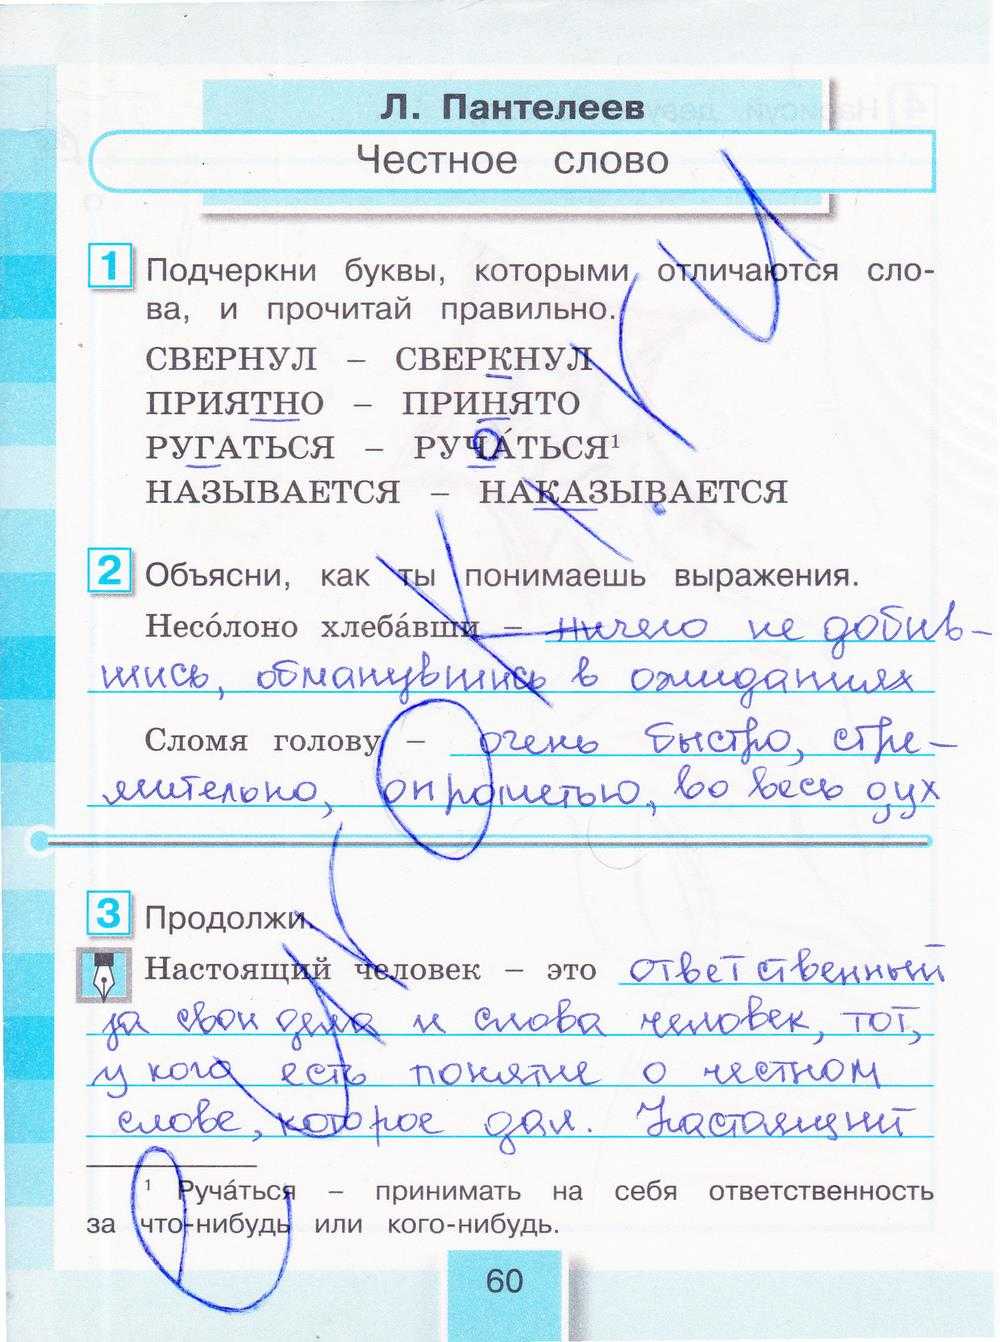 Л. Пантелеев
Честное слово
1 Подчеркни буквы, которыми отличаются сло-
ва, и прочитай правильно.
СВЕРНУЛ – СВЕРКНУЛ
ПРИЯТНО – ПРИНЯТО
РУГАТЬСЯ – РУЧА́ТЬСЯ¹
НАЗЫВАЕТСЯ – НАКАЗЫВАЕТСЯ
2 Объясни, как ты понимаешь выражения.
Несо́лоно хлеба́вши – ничего не добив-
шись, обманувшись в ожиданиях
Сломя голову – очень быстро, стре-
мительно, опрометью, во весь дух
3 Продолжи.
Настоящий человек – это ответственный
за свои дела и слова человек, тот,
у кого есть понятие о честном
слове, которое дал. Настоящий
¹ Руча́ться – принимать на себя ответственность
за что-нибудь или кого-нибудь.
60